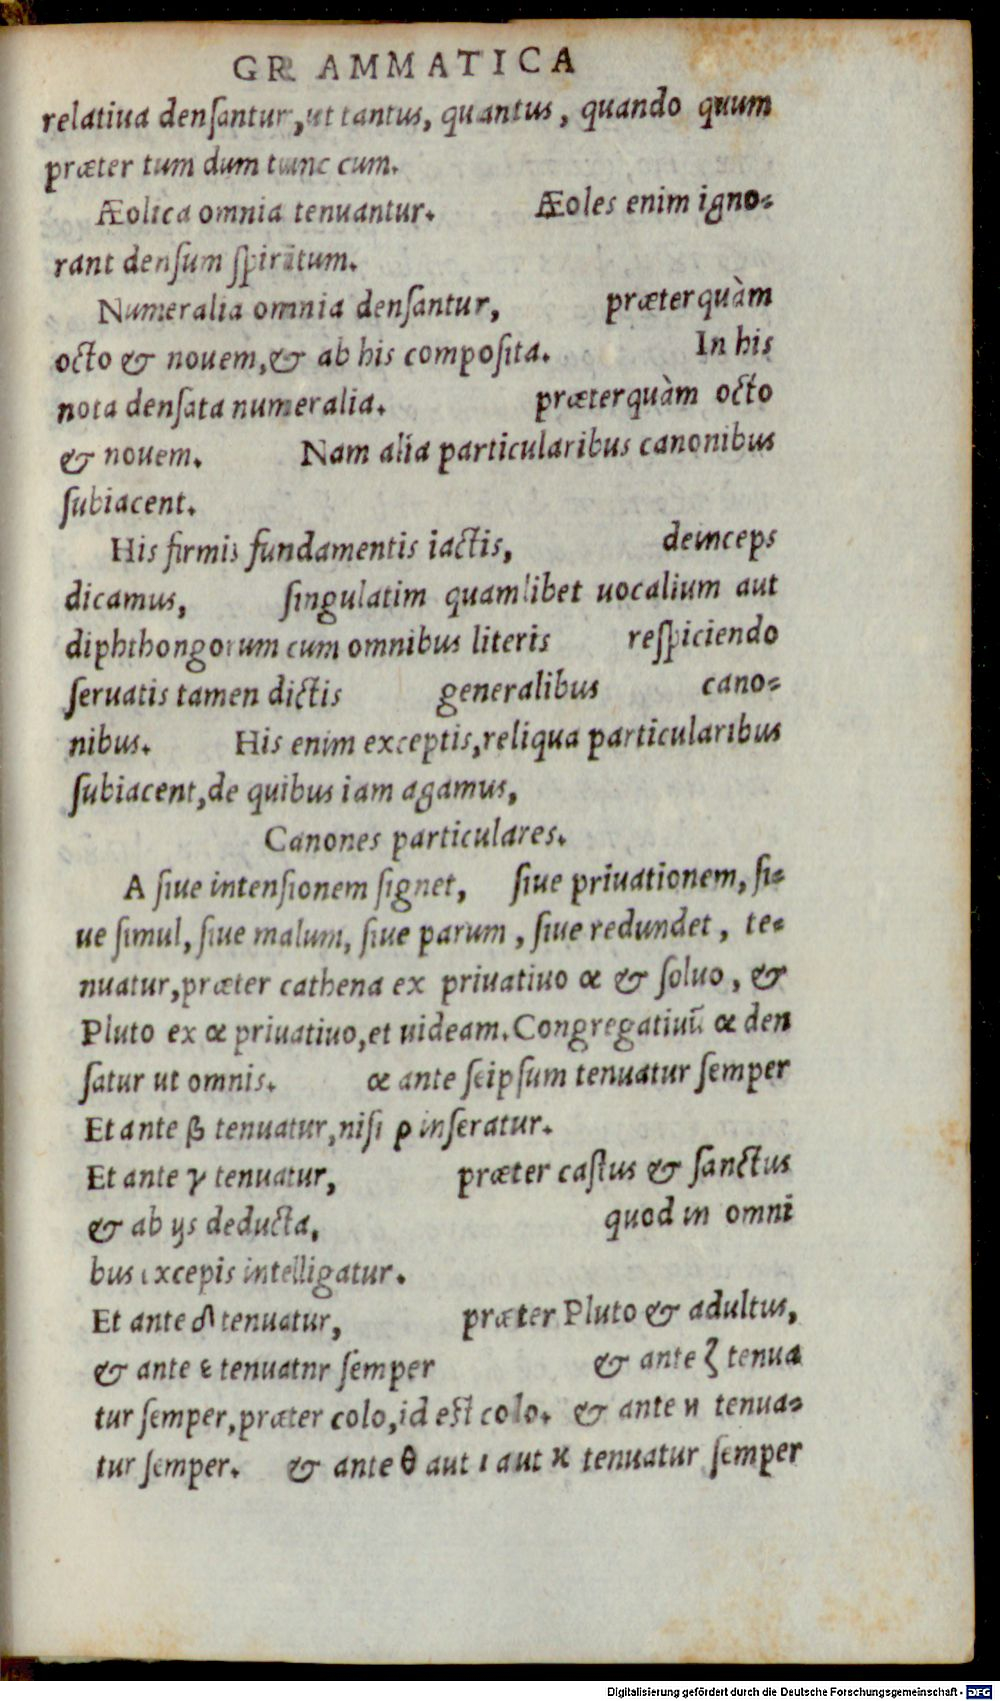 GRAMMATICA
relatiua denſantur, ut tantus, quantus, quando quum
præter tum dum tunc cum.
Æolica omnia tenuantur. Æoles enim igno-
rant denſum ſpiritum.
Numeralia omnia denſantur, præterquàm
octo & nouem, & ab his compoſita. In his
nota denſata numeralia. præterquàm octo
& nouem. Nam alia particularibus canonibus
ſubiacent.
His firmis fundamentis iactis, deinceps
dicamus, ſingulatim quamlibet uocalium aut
diphthongorum cum omnibus literis reſpiciendo
ſeruatis tamen dictis generalibus cano-
nibus. His enim exceptis, reliqua particularibus
ſubiacent, de quibus iam agamus,
Canones particulares.
A ſiue intenſionem ſignet, ſiue priuationem, ſi-
ue ſimul, ſiue malum, ſiue parum, ſiue redundet, te-
nuatur, præter cathena ex priuatiuo α & ſoluo, &
Pluto ex α priuatiuo, et uideam. Congregatiuū α den
ſatur ut omnis. α ante ſeipſum tenuatur ſemper
Et ante β tenuatur, niſi ρ inſeratur.
Et ante γ tenuatur, præter caſtus & ſanctus
& ab ijs deducta, quod in omni
bus excepis intelligatur.
Et ante δ tenuatur, præter Pluto & adultus,
& ante ε tenuatnr ſemper & ante ζ tenua
tur ſemper, præter colo, id eſt colo. & ante η tenua-
tur ſemper. & ante θ aut ι aut κ tenuatur ſemper
Digitalisierung gefördert durch die Deutsche Forschungsgemeinschaft - DFG